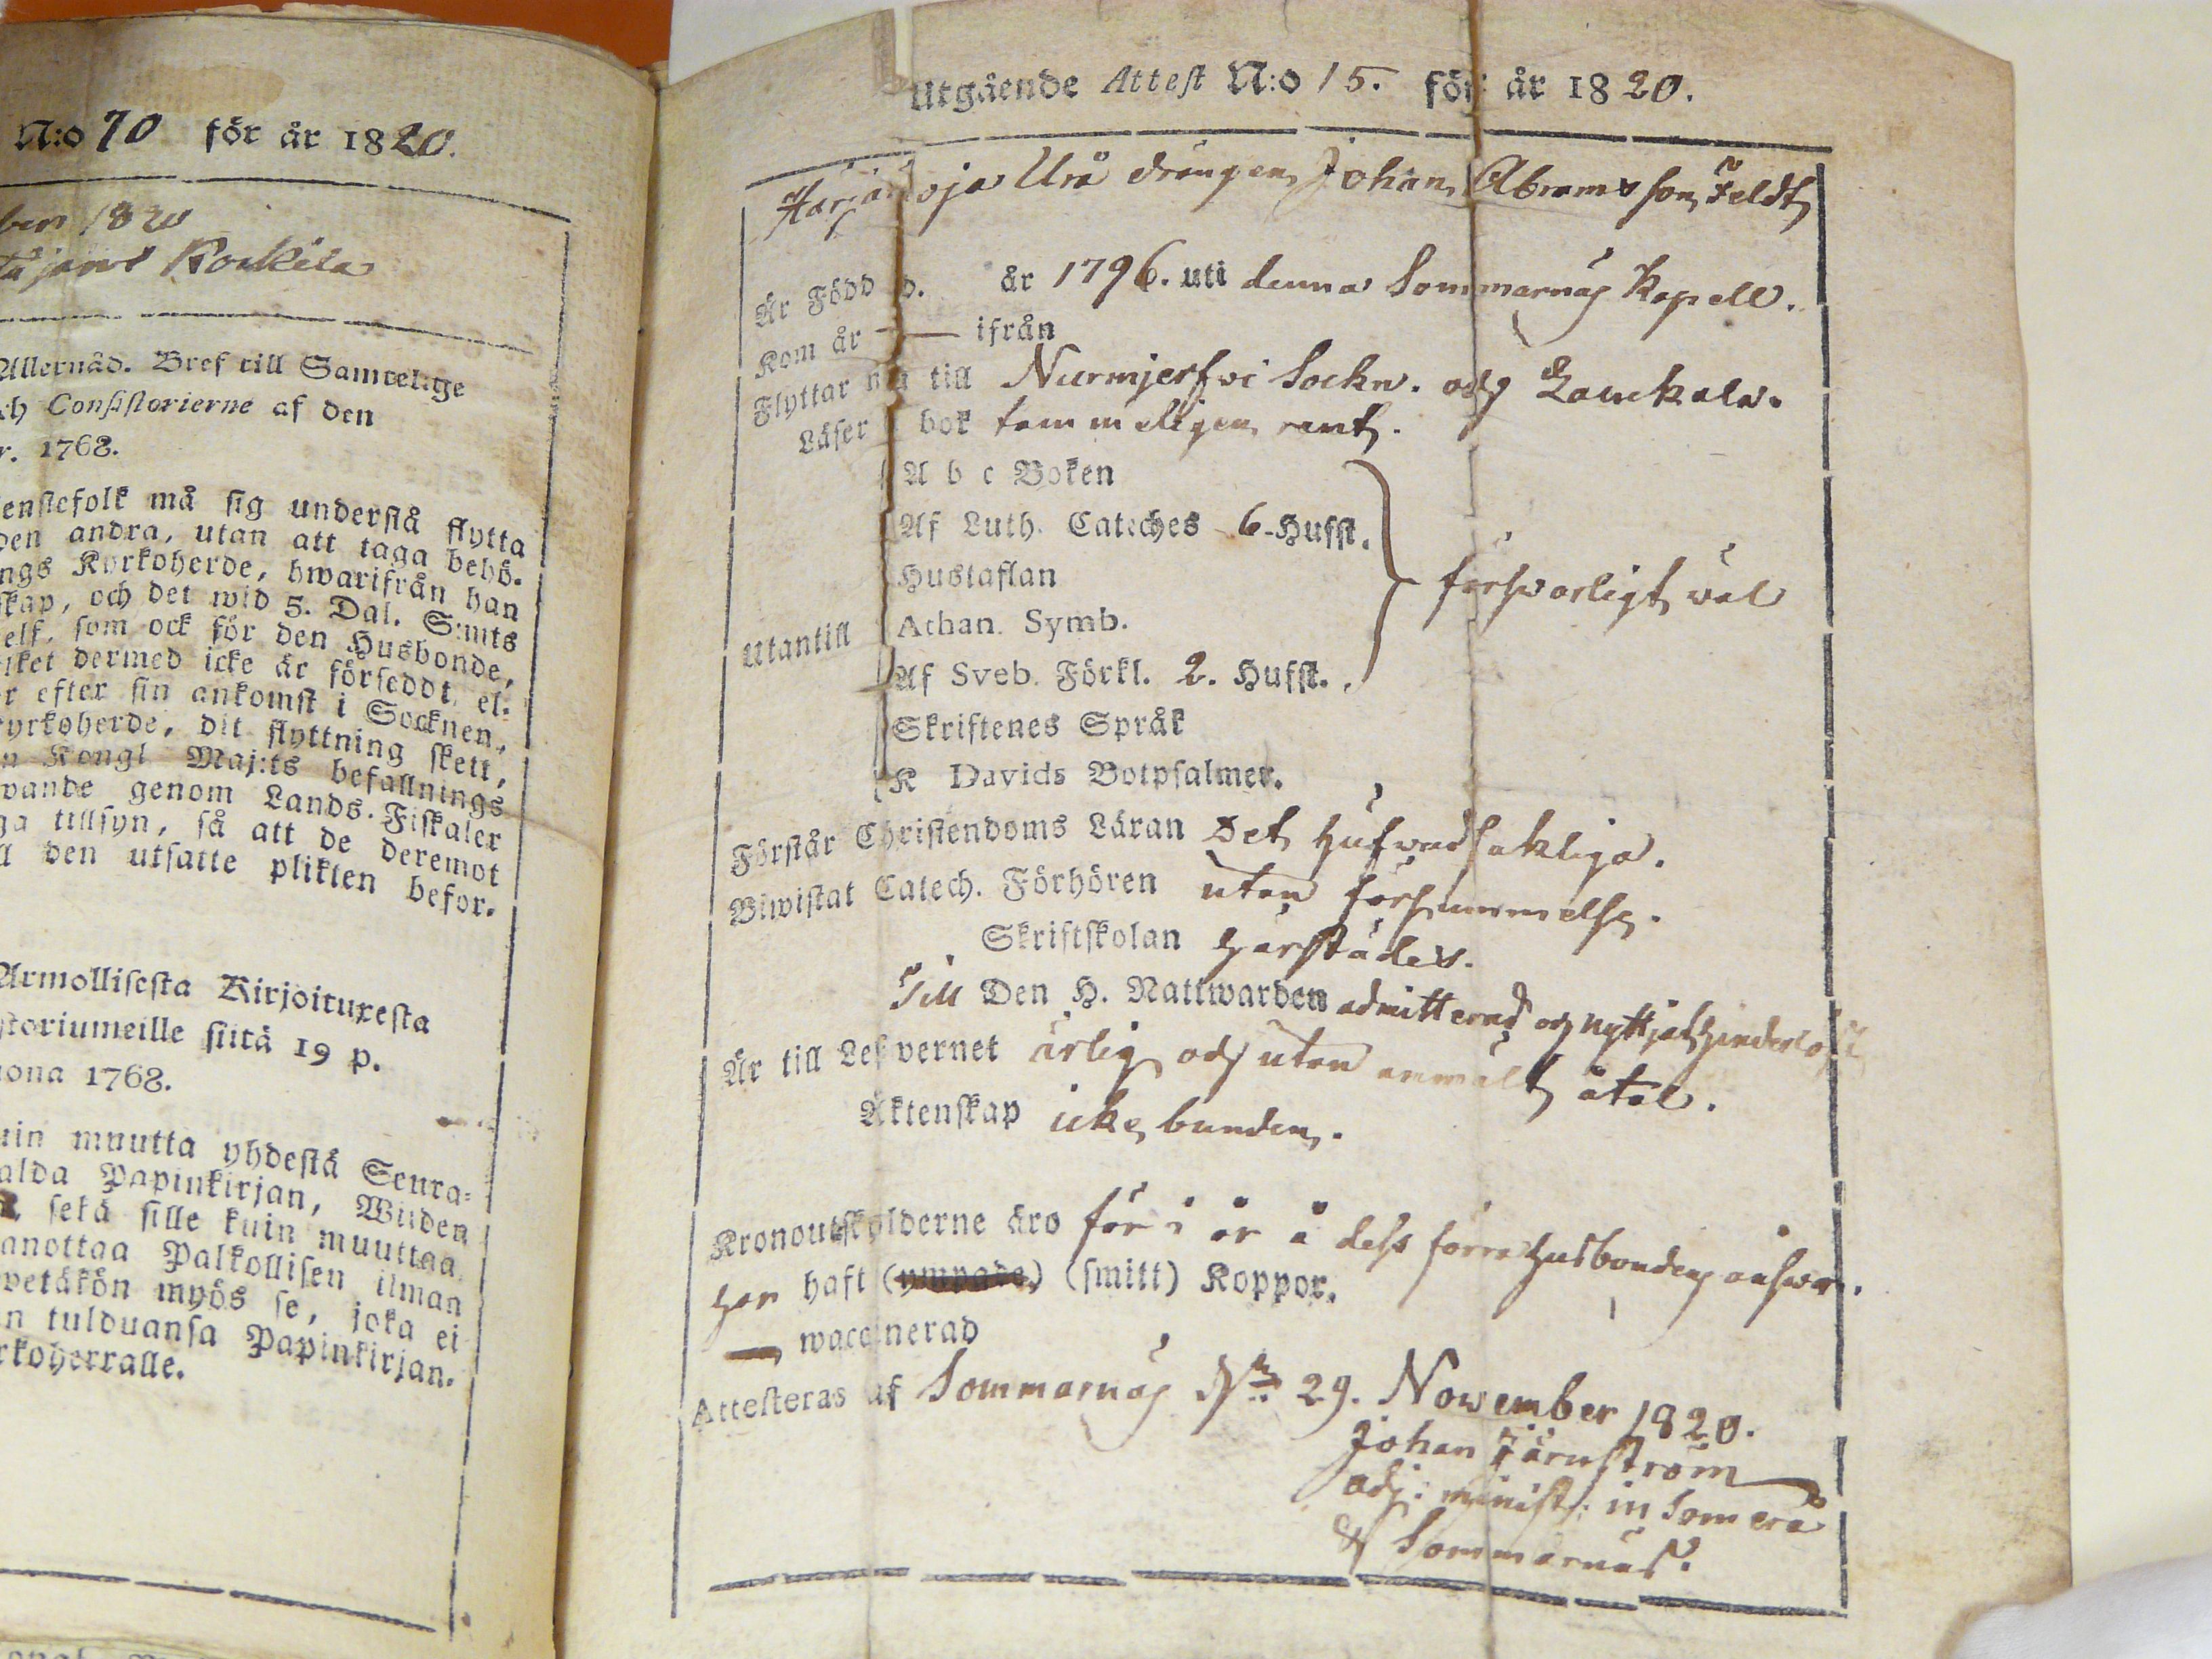 N:o 70 för år 1820.
ben 1820
Korkila
Allernåd. Bref till Samtelige
ch Consistorierne af den
r. 1768.
enstefolk må sig understå flytta
den andra, utan att taga behö-
ngs Kyrkoherde, hwarifrån han
skap, och det wid 5. Dal. S:mts
elf, som ock för den Husbonde,
ilket dermed icke är förseddt, el-
r efter sin ankomst i Socknen,
yrkoherde, dit flyttning skett,
n Kongl Maj:ts befallnings
wande genom Lands-Fiskaler
ga tillsyn, så att de deremot
ll den utsatte plikten befor-
Armollisesta Kirjoituxesta
storiumeille siitä 19 p.
uona 1768.
uin muutta yhdestä Seura-
alda Papinkirjan, Wiiden
sekä sille kuin muuttaa
anottaa Palkollisen ilman
wetäkön myös se, joka ei
n tulduansa Papinkirjan.
rkoherralle.
Utgående Attest N:o 15. för år 1820.
Harjanoja Urå drängen Johan Abramsson Feldt
Är Född d. år 1796. uti denna Sommarnäs Kapell.
Kom år — ifrån
Flyttar nu till Nurmjerfwi Sockn. och Laukala.
Läser i bok temmeligen rent.
A b c Boken
Af Luth. Cateches 6-Hufst.
Hustaflan försvarligt wäl
Utantill Athan. Symb.
Af Sveb. Förkl. 2. Hufst.
Skriftenes Språk
K Davids Botpsalmer.
Förstår Christendoms Läran Det hufwudsakliga.
Biwistat Catech. Förhören utan försummelse.
Skriftskolan härstädes.
Till Den H. Nattwarden admitterad och nyttjat hinderlöst
Är till Lefvernet ärlig och utan anmält åtal.
Äktenskap icke bunden.
Kronoutskylderne äro för i år å dess förra husbondens answar.
Har haft (ympade) (smitt) Koppor.
— waccinerad
Attesteras af Sommarnäs d. 29. November 1820.
Johan Järnström
adj: minist: in Somero
& Sommarnäs.